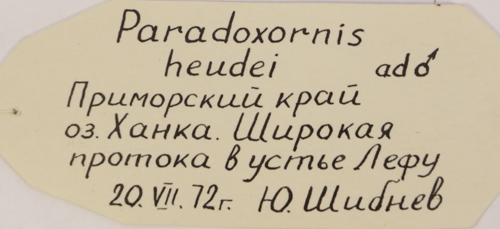 Paradoxornis
heudei ad ♂
Приморский край
оз. Ханка. Широкая
протока в устье Лефу
20. VII. 72г. Ю. Шибнев